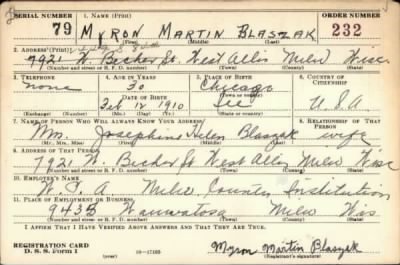 SERIAL NUMBER 1. NAME (Print) ORDER NUMBER
79 MYRON MARTIN BLASZAK 232
(First) (Middle) (Last)
2. ADDRESS (Print)
7921 W. Becher St. West Allis Milw Wisc
(Number and street or R. F. D. number) (Town) (County) (State)
3. TELEPHONE 4. AGE IN YEARS 5. PLACE OF BIRTH 6. COUNTRY OF CITIZENSHIP
none 30 Chicago
DATE OF BIRTH (Town or county)
Feb 12 1910 Ill U.S.A
(Exchange) (Number) (Mo.) (Day) (Yr.) (State or country)
7. NAME OF PERSON WHO WILL ALWAYS KNOW YOUR ADDRESS 8. RELATIONSHIP OF THAT PERSON
Mrs. Josephine Helen Blaszak wife
(Mr., Mrs., Miss) (First) (Middle) (Last)
9. ADDRESS OF THAT PERSON
7921 W. Becher St West Allis Milw Wisc
(Number and street or R. F. D. number) (Town) (County) (State)
10. EMPLOYER'S NAME
W.P.A Milw County Institution
11. PLACE OF EMPLOYMENT OR BUSINESS
9435 Wauwatosa Milw Wis
(Number and street or R. F. D. number) (Town) (County) (State)
I AFFIRM THAT I HAVE VERIFIED ABOVE ANSWERS AND THAT THEY ARE TRUE.
REGISTRATION CARD
D. S. S. Form 1 16—17105 Myron Martin Blaszak
(Registrant's signature)